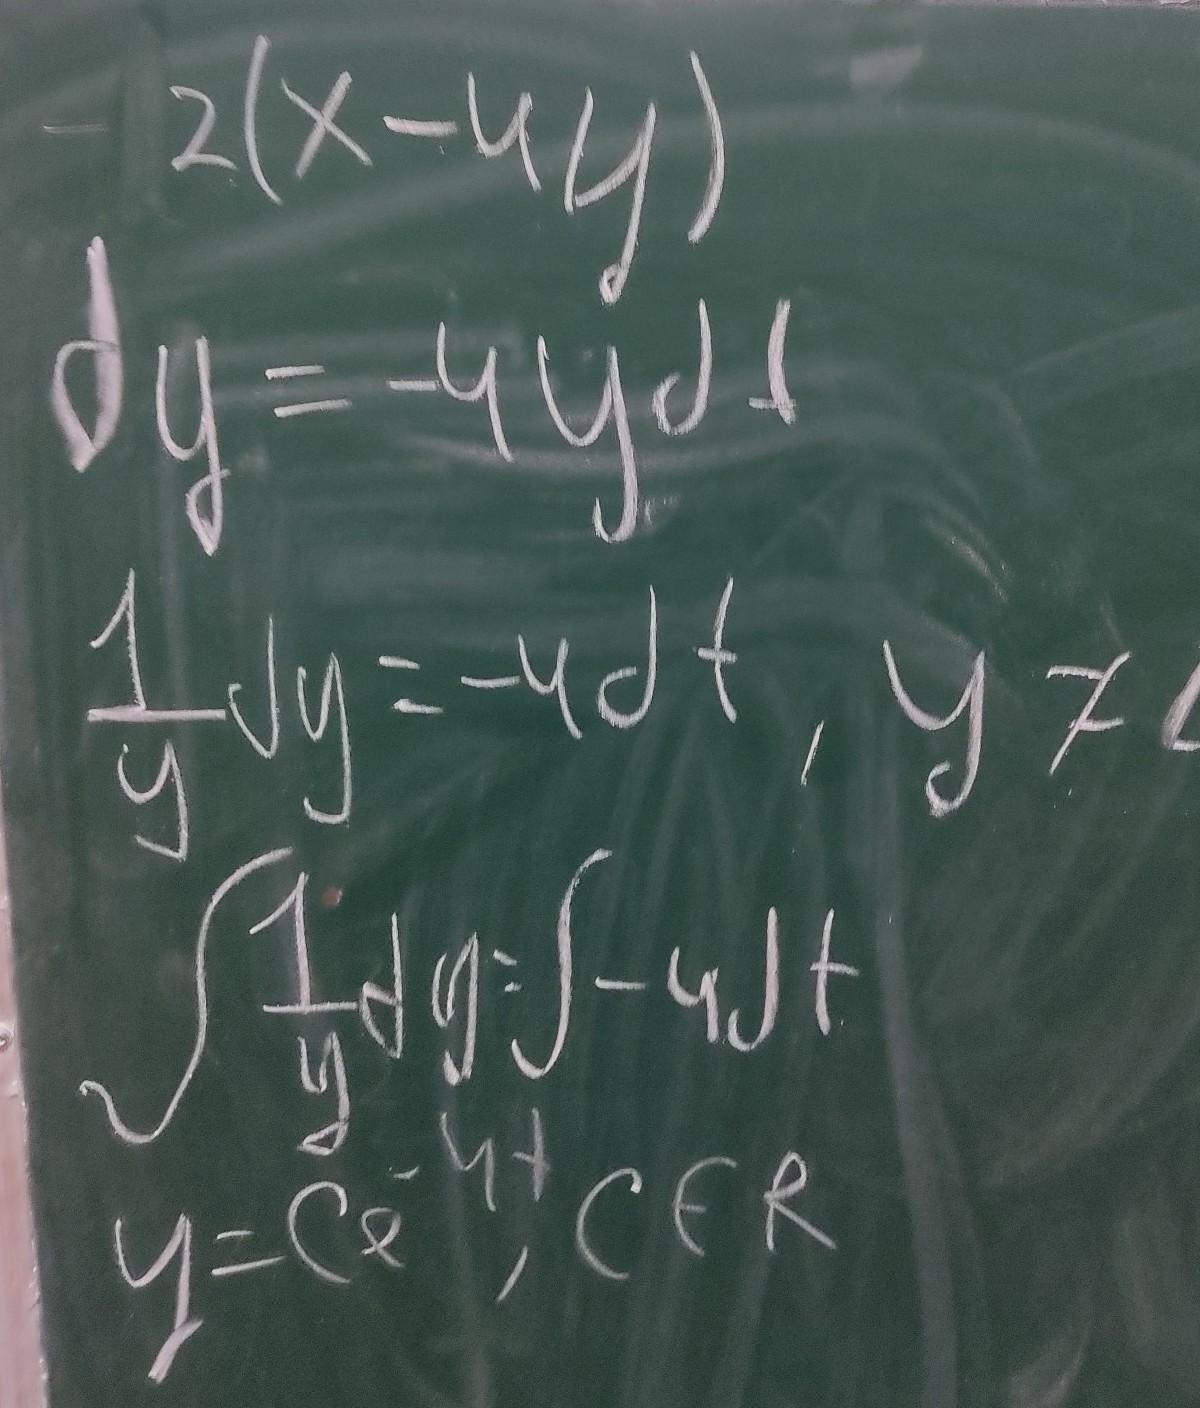 - 2(x-4y)
dy = -4ydt
1/y dy = -4dt, y ≠
∫ 1/y dy = ∫ -4dt
y = Ce^-4t, C ∈ R